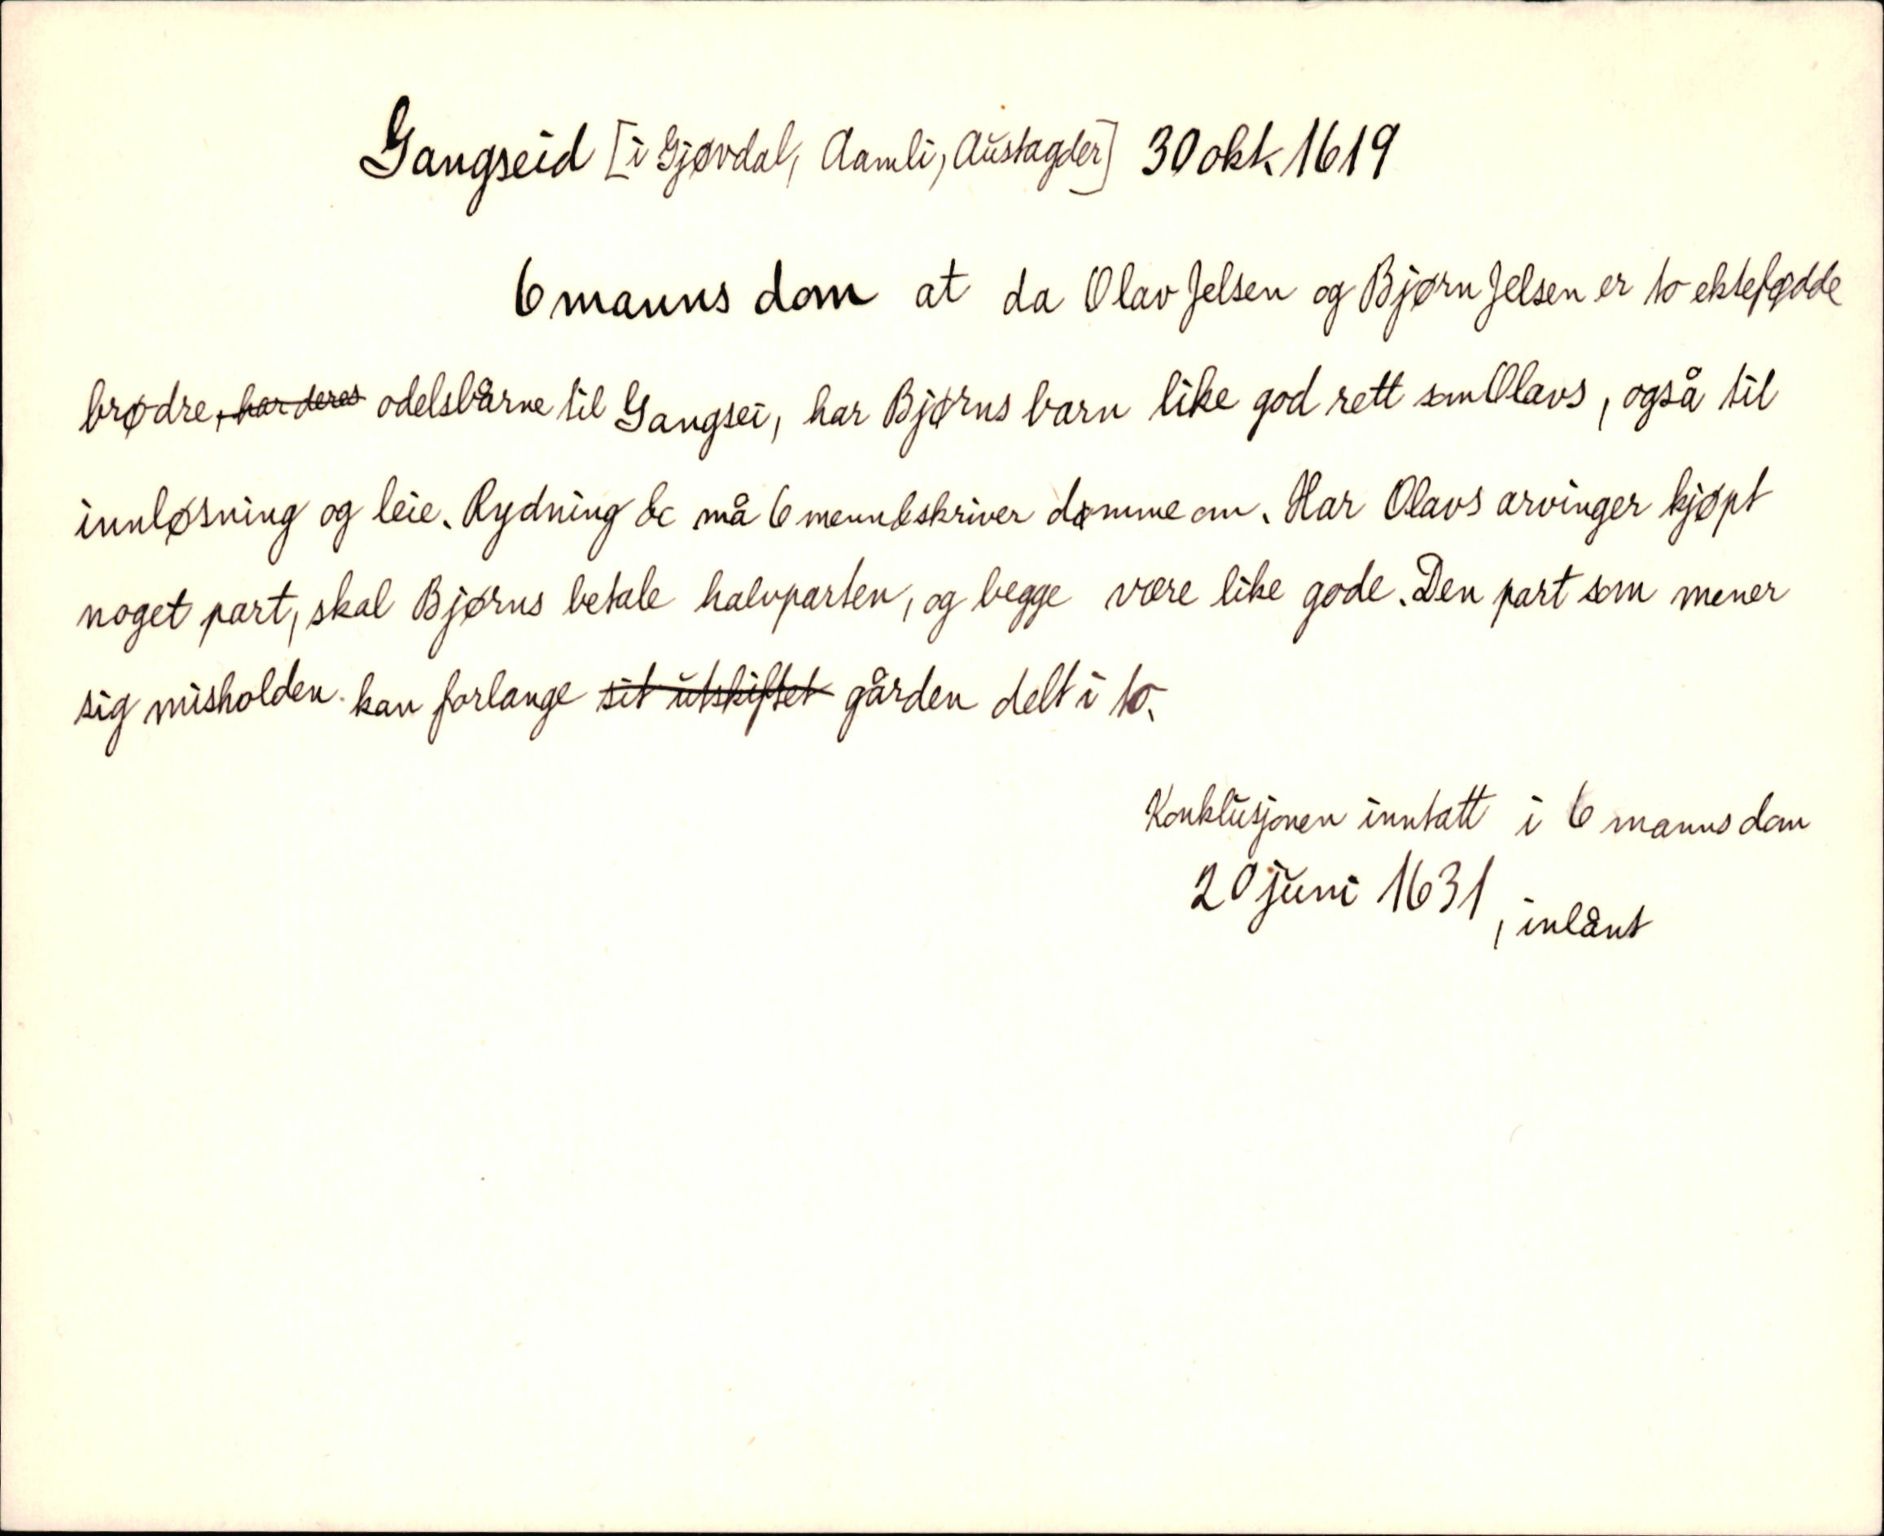 Gangseid [i Gjøvdal, Aamli, Austagder] 30 okt. 1619
6 manns dom at da Olav Jelsen og Bjørn Jelsen er to ektefødde
brødre, har deres odelsbårne til Gangsei, har Bjørns barn like god rett som Olavs, også til
innløsning og leie. Rydning &c må 6 menn & skriver dømme om. Har Olavs arvinger kjøpt
noget part, skal Bjørns betale halvparten, og begge være like gode. Den part som mener
sig misholden kan forlange sit utskiftet gården delt i to.
Konklusjonen inntatt i 6 manns dom
20 juni 1631, inlånt